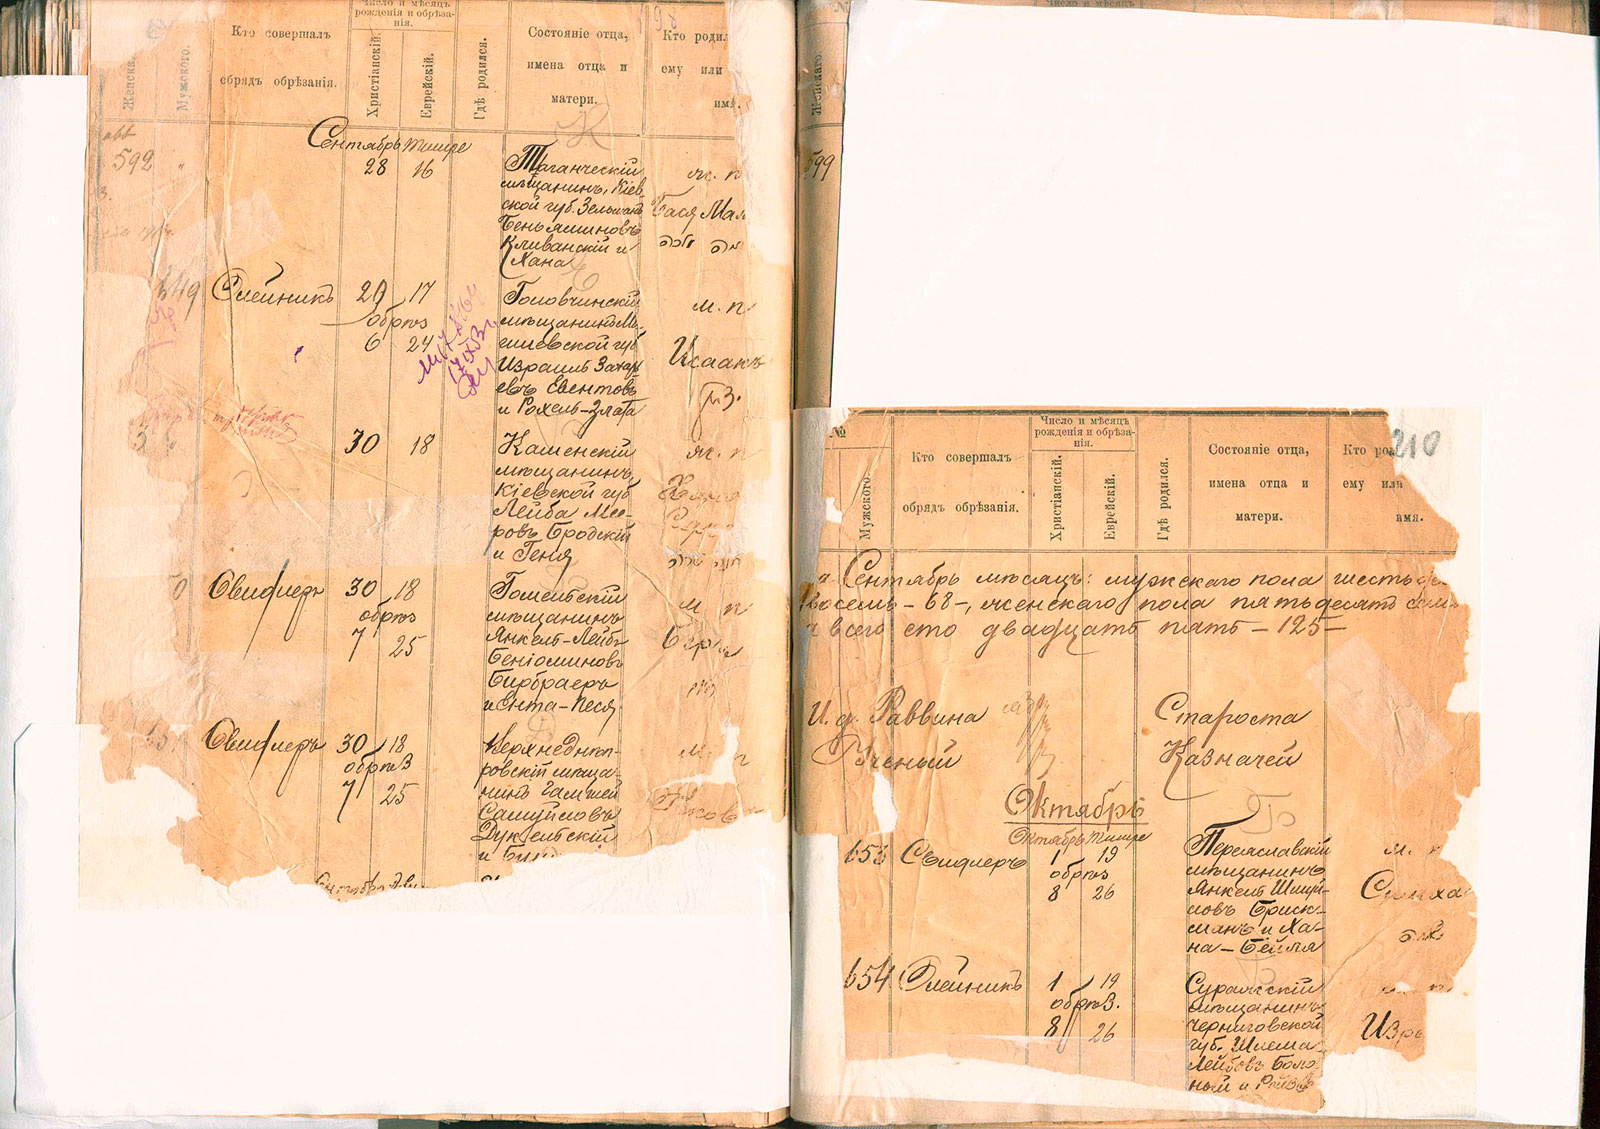 Женска.
Мужского.
Кто совершалъ
обрядъ обрѣзанія.
Число и мѣсяцъ
рожденія и обрѣза-
нія.
Христіанскій.
Еврейскій.
Гдѣ родился.
Состояніе отца,
имена отца и
матери.
Кто родил
ему или
имя.
592
Сентябрь Тишре
28 16
Таганческій
мѣщанинъ, Кіев-
ской губ. Зельманъ
Беньяминовъ
Кливанскій и
Хана
ж. п
Бася Мал
649
Олейникъ
29 17
обрѣз
6 24
Головчинскій
мѣщанинъ Мо-
гилевской губ
Израиль Захарь-
евъ Евентовъ
и Рохель-Злата
м. п
Исаакъ
30 18
Каменскій
мѣщанинъ,
Кіевской губ
Лейба Меe-
ровъ Бродскій
и Геня
ж. п
Свифлеръ
30 18
обрѣз
7 25
Гомельскій
мѣщанинъ
Янкель-Лейба
Беніоминовъ
Бирбраеръ
и Ента-Песя
м. п
Свифлеръ
30 18
обрѣз
7 25
Верхнеднѣп-
ровскій мѣща-
нинъ Гамшей
Самуйловъ
Дукельскій
и
м.
Женскаго
599
№
Мужского.
Кто совершалъ
обрядъ обрѣзанія.
Число и мѣсяцъ
рожденія и обрѣза-
нія.
Христіанскій.
Еврейскій.
Гдѣ родился.
Состояніе отца,
имена отца и
матери.
Кто ро
ему или
имя.
210
а Сентябрь мѣсяцъ: мужскаго пола шестьде
восемь - 68 -, женскаго пола пятьдесятъ сем
и всего сто двадцать пять - 125 -
И. д. Раввина
Ученый
Староста
Казначей
Октябрь
Октябрь Тишре
653 Свифлеръ
1 19
обрѣз
8 26
Переяславскій
мѣщанинъ
Янкель Шмуй-
ловъ Бриск-
манъ и Ха-
на-Бейля
м. п
Симха
654 Олейникъ
1 19
обрѣз.
8 26
Суражскій
мѣщанинъ
Черниговской
губ. Шлема-
Лейбовъ Боло
ный и
п
Изр